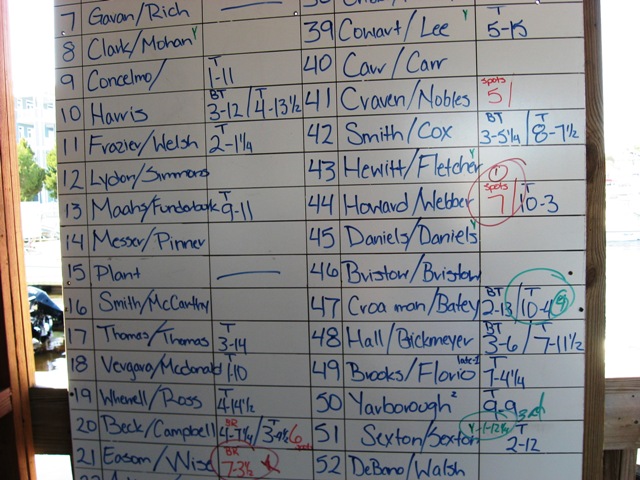 7 Gavan/Rich
8 Clark/Mohan Y
9 Concelmo/ T 1-11
10 Harris BT 3-12 / T 4-13½
11 Frazier/Welsh T 2-1¼
12 Lydon/Simmons
13 Maahs/Funderbunk T 9-11
14 Messer/Pinner
15 Plant
16 Smith/McCarthy
17 Thomas/Thomas T 3-14
18 Vergara/Mcdonald T 1-10
19 Wherrell/Ross T 4-14½
20 Beck/Campbell BR 4-7¼ / T
21 Eason/Wise BR 7-3½
39 Cowart/Lee Y T 5-15
40 Carr/Carr
41 Craven/Nobles spots 5
42 Smith/Cox BT 3-5¼ / T 8-7½
43 Hewitt/Fletcher Y
44 Howard/Webber 1 spots 7 / T 10-3
45 Daniels/Daniels Y
46 Bristow/Bristow
47 Croaman/Batey BT 2-13 / T 10-4
48 Hall/Bickmeyer BT 3-6 / T 7-11½
49 Brooks/Florio late-1 T 7-4¼
50 Yarborough 2 T 9-9 3rd
51 Sexton/Sexton T 2-12
52 DeBano/Walsh